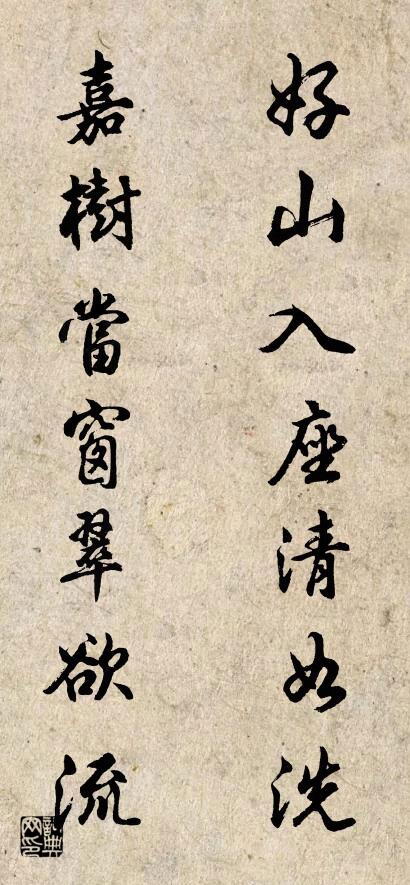 好山入座清如洗
嘉樹當窗翠欲流